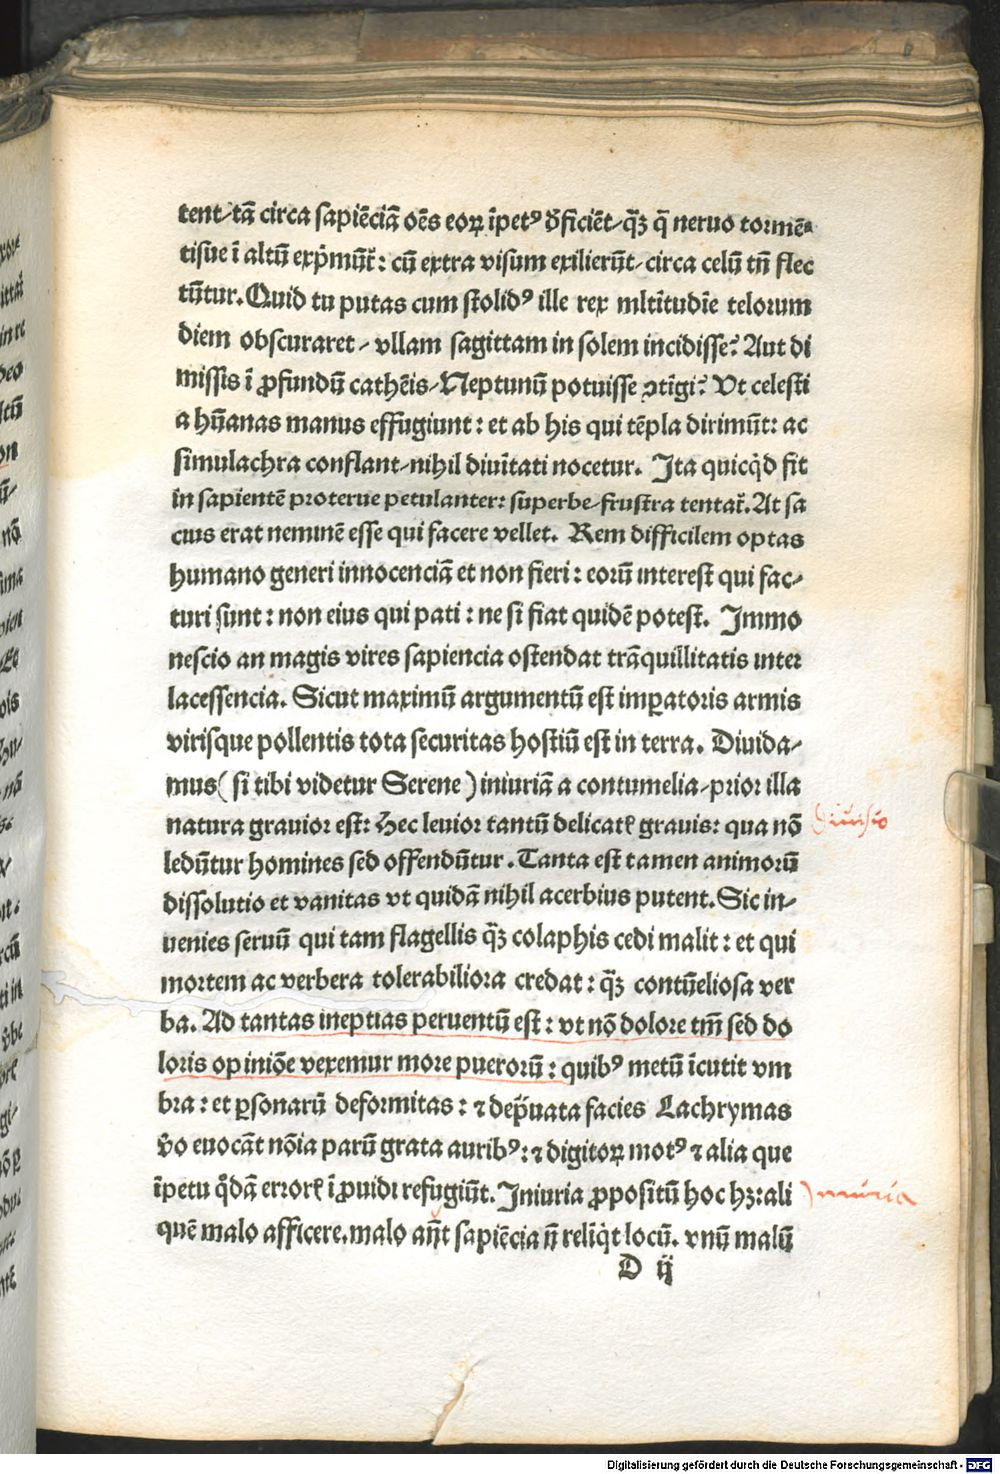 tent⸗tā circa sapiēciā oēs eoꝝ īpetꝰ ðficiēt⸗q̄ꝫ q̄ neruo tormē⸗
tisue ī altū exp̄mūt̄: cū extra visum exilierūt⸗circa celū tñ flec
tūtur. Quid tu putas cum stolidꝰ ille rex mltītudīe telorum
diem obscuraret⸗vllam sagittam in solem incidisse? Aut di
missis ī ꝓfundū cathēis⸗Neptunū potuisse ↄtīgi? Vt celesti
a hūanas manus effugiunt: et ab his qui tēpla dirimūt: ac
simulachra conflant⸗nihil diuītati nocetur. Ita quicq̇d fit
in sapientē proterue petulanter: superbe⸗frustra tentat̄. At sa
cius erat neminē esse qui facere vellet. Rem difficilem optas
humano generi innocenciā et non fieri: eorū interest qui fac⸗
turi sunt: non eius qui pati: ne si fiat quidē potest. Immo
nescio an magis vires sapiencia ostendat trāquillitatis inter
lacessencia. Sicut maximū argumentū est imꝑatoris armis
virisque pollentis tota securitas hostiū est in terra. Diuida⸗
mus( si tibi videtur Serene ) iniuriā a contumelia⸗prior illa
natura grauior est: Hec leuior tantū delicatꝭ grauis: qua nō
diuisio
ledūtur homines sed offendūtur. Tanta est tamen animorū
dissolutio et vanitas vt quidā nihil acerbius putent. Sic in⸗
uenies seruū qui tam flagellis q̄ꝫ colaphis cedi malit: et qui
mortem ac verbera tolerabiliora credat: q̄ꝫ contūeliosa ver
ba. Ad tantas ineptias peruentū est: vt nō dolore tm̄ sed do
loris opiniōe vexemur more puerorū: quibꝰ metū īcutit vm
bra: et ꝑsonarū deformitas: ⁊ dep̄uata facies Lachrymas
v̊o euocāt nōia parū grata auribꝰ: ⁊ digitoꝝ motꝰ ⁊ alia que
īpetu q̄dā errorꝭ īꝓuidi refugiūt. Iniuria ꝓpositū hoc hꝫ: ali
iniuria
quē malo afficere. malo aūt sapiēcia ū reliq̇t locū. vnū malū
D ij
Digitalisierung gefördert durch die Deutsche Forschungsgemeinschaft - DFG